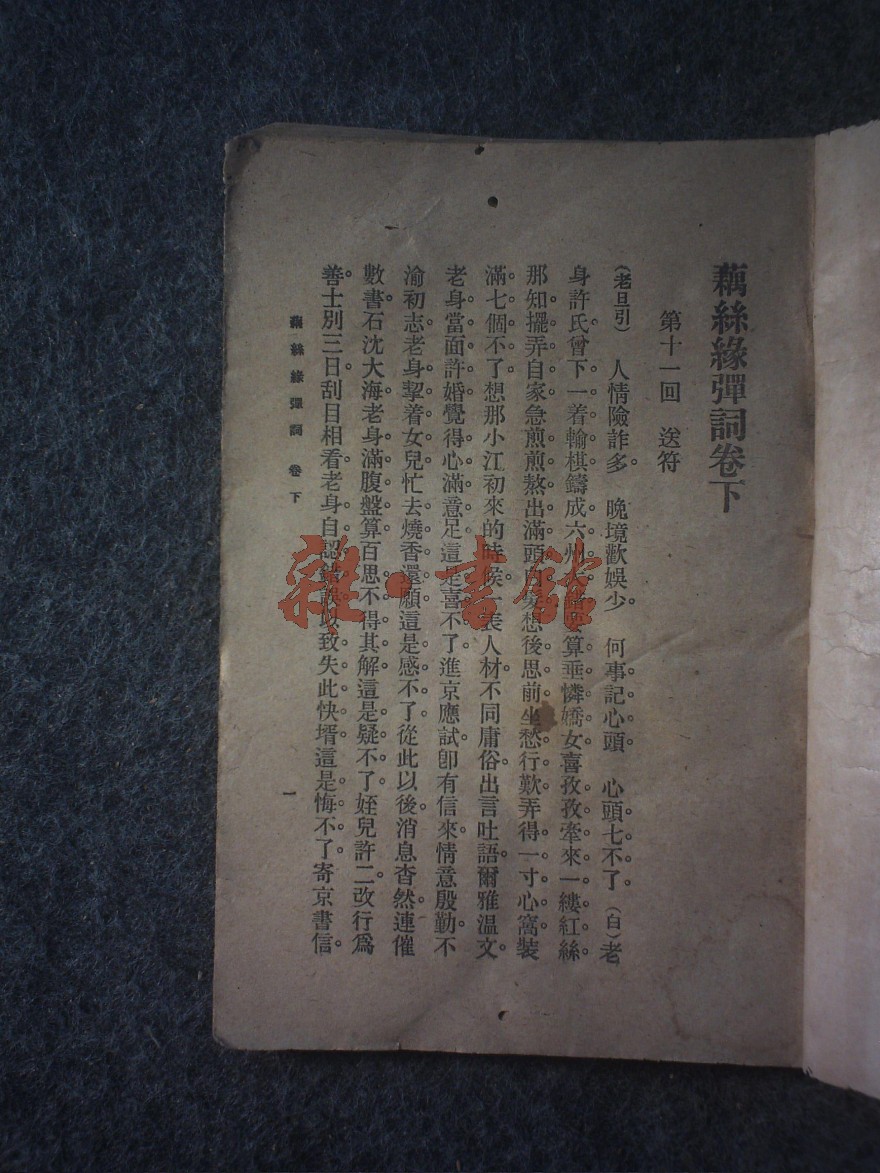 藕絲緣彈詞卷下
第十一回　送符
（老旦引）　人情險詐多。　晚境歡娛少。　何事記心頭。　心頭七不了。（白）老
身許氏。曾下一着輸棋。鑄成六州大錯。要算垂憐嬌女。喜孜孜牽來一縷紅絲。
那知擺弄自家。急煎煎熬出滿頭白髮。想後思前。坐愁行歎。弄得一寸心窩。裝
滿七個不了。想那小江初來的時候。一表人材。不同庸俗。出言吐語。爾雅溫文。
老身當面許婚。覺得心滿意足。這是喜不了。進京應試。卽有信來。情意殷勤。不
渝初志。老身挈着女兒。忙去燒香還願。這是感不了。從此以後。消息杳然。連催
數書。石沈大海。老身滿腹盤算。百思不得其解。這是疑不了。姪兒許二。改行爲
善。士別三日。刮目相看。老身自認錯誤。以致失此快壻。這是悔不了。寄京書信。
藕絲緣彈詞　卷下
一
雜·書館